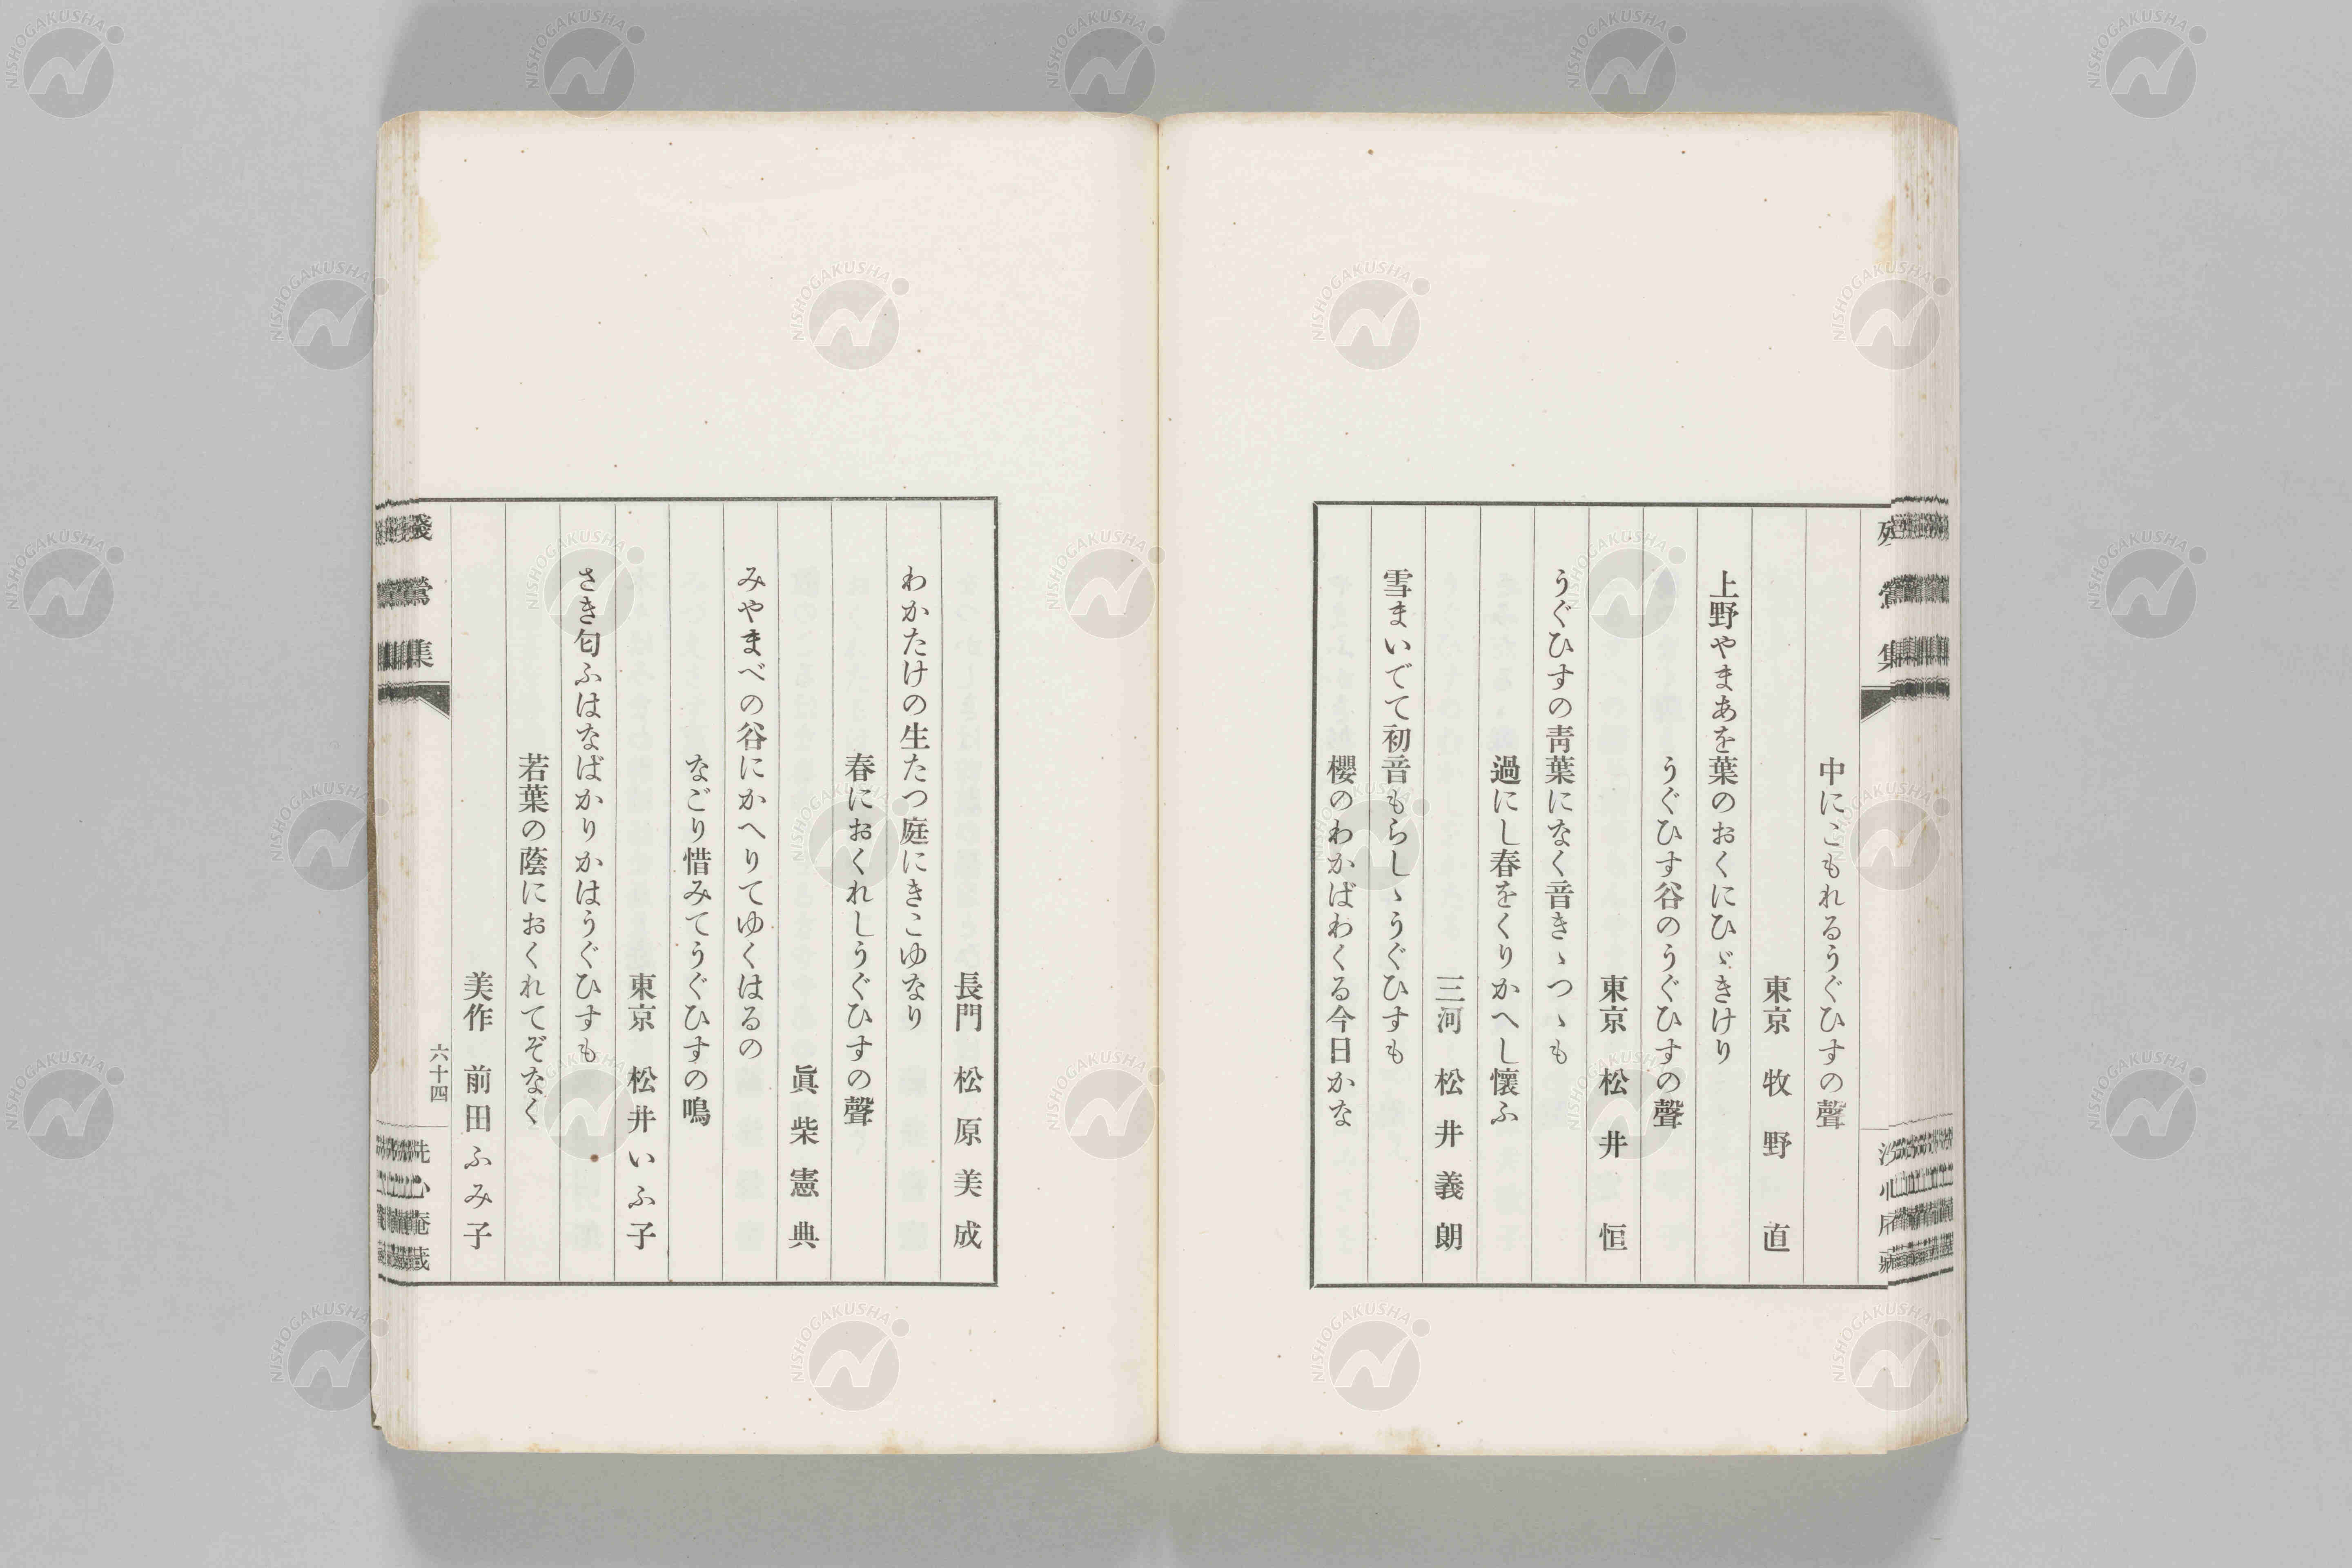 中にこもれるうぐひすの聲
東京 牧野直
上野やまあを葉のおくにひゞきけり
うぐひす谷のうぐひすの聲
東京 松井恒
うぐひすの靑葉になく音きゝつゝも
過にし春をくりかへし懷ふ
三河 松井義朗
雪まいでて初音もらしゝうぐひすも
櫻のわかばわくる今日かな
長門 松原美成
わかたけの生たつ庭にきこゆなり
春におくれしうぐひすの聲
眞柴憲典
みやまべの谷にかへりてゆくはるの
なごり惜みてうぐひすの鳴
東京 松井いふ子
さき匂ふはなばかりかはうぐひすも
若葉の蔭におくれてぞなく
美作 前田ふみ子
殘鶯集
六十四
洗心庵藏
NISHOGAKUSHA